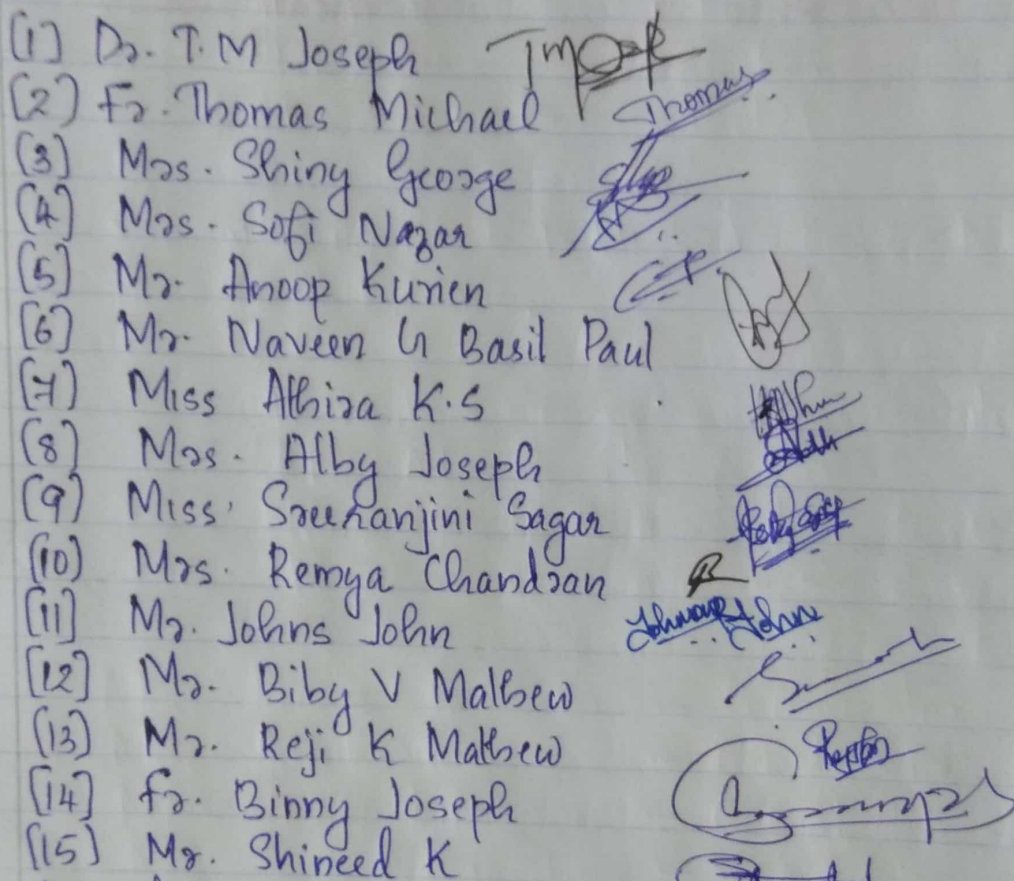 (1) Dr. T.M Joseph
(2) Fr. Thomas Michael Thomas
(3) Mrs. Shiny George
(4) Mrs. Sofi Nazar
(5) Mr. Anoop Kurien
(6) Mr. Naveen G Basil Paul
(7) Miss Athira K.S
(8) Mrs. Alby Joseph
(9) Miss. Sreeranjini Sagar
(10) Mrs. Remya Chandran
(11) Mr. Johns John
(12) Mr. Biby V Mathew
(13) Mr. Reji K Mathew
(14) Fr. Binny Joseph
(15) Mr. Shineed K